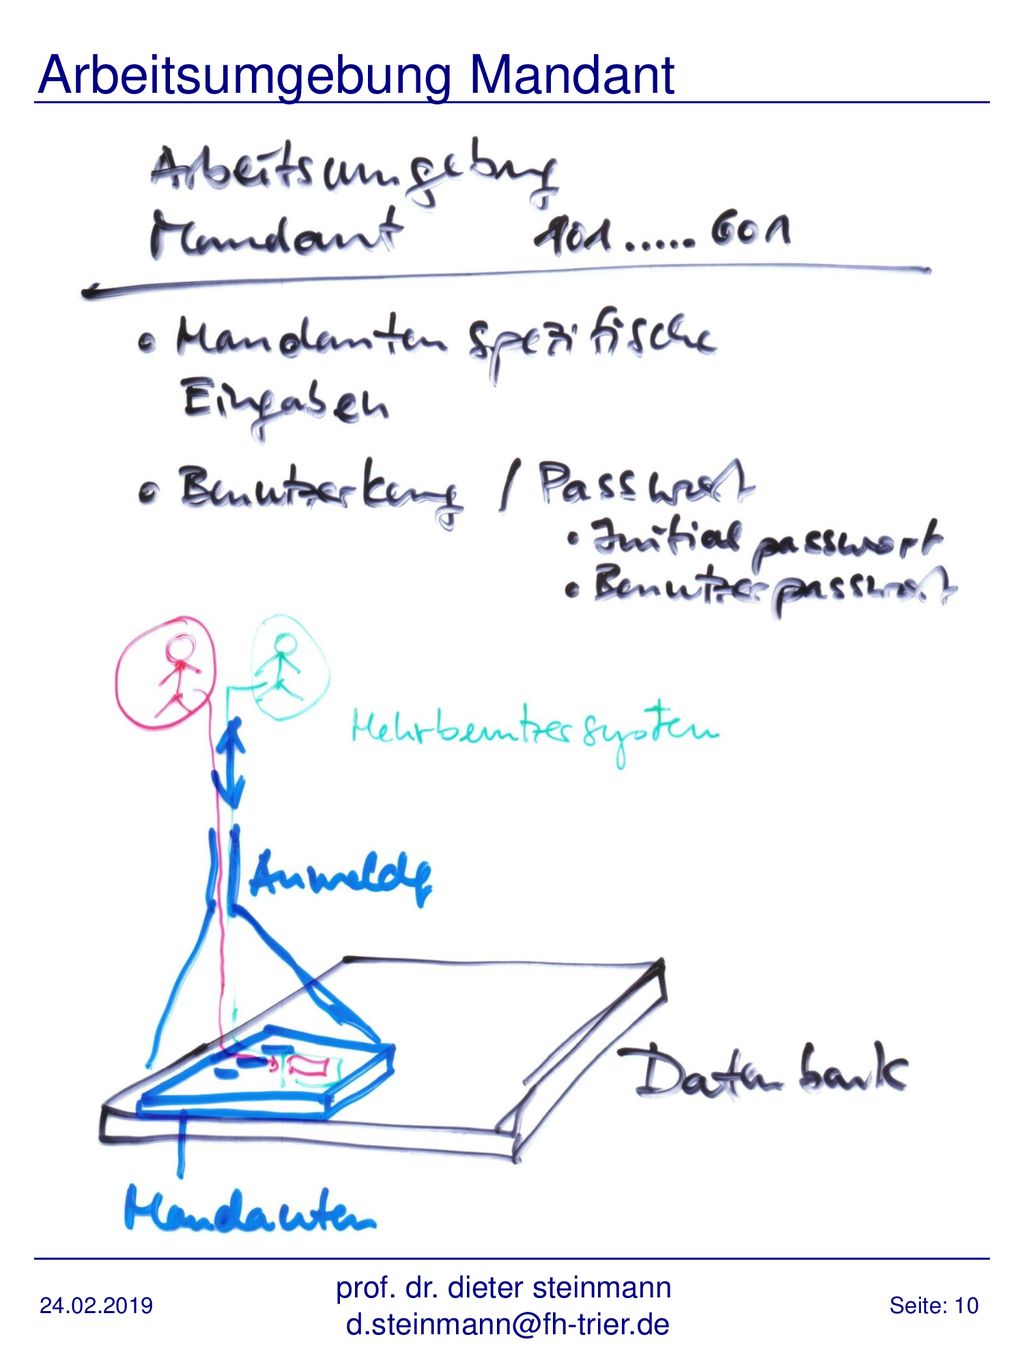 Arbeitsumgebung Mandant
Arbeitsumgebung
Mandant 101.....601
• Mandanten spezifische
Eingaben
• Benutzerkennung / Passwort
• Initialpasswort
• Benutzerpasswort
Mehrbenutzersystem
Anmeldg
Datenbank
Mandanten
24.02.2019
prof. dr. dieter steinmann
d.steinmann@fh-trier.de
Seite: 10